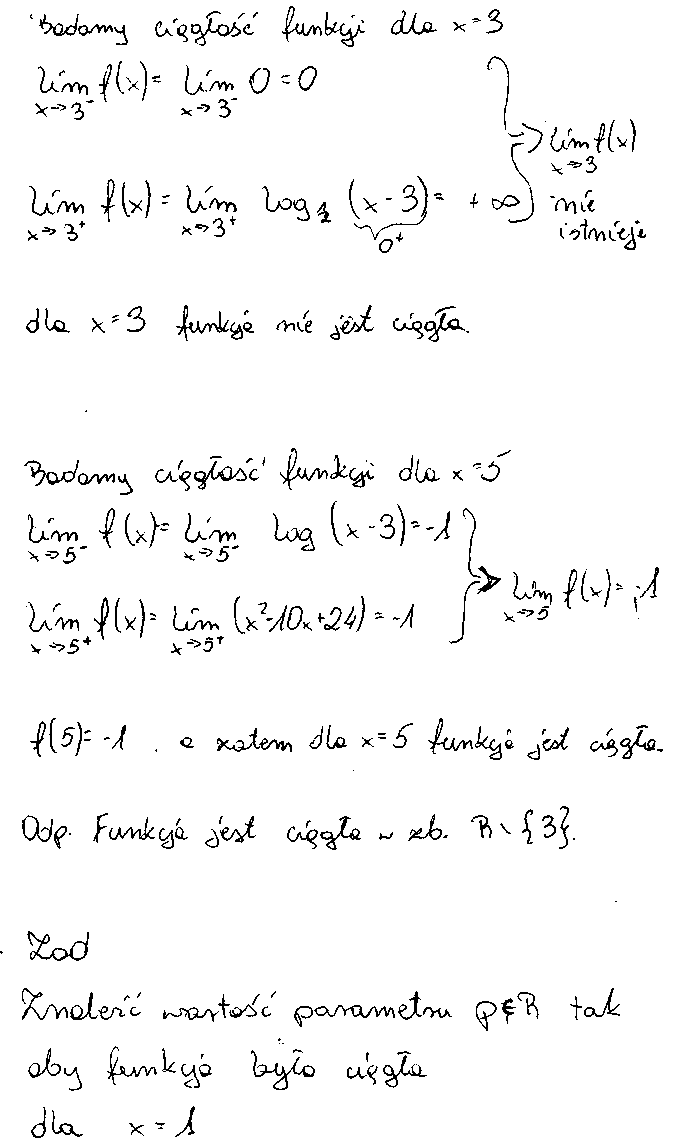 Badamy ciągłość funkcji dla x=3
lim f(x) = lim 0 = 0
x→3⁻ x→3⁻
⇒ lim f(x)
x→3
lim f(x) = lim log½ (x-3) = +∞ nie
x→3⁺ x→3⁺ 0⁺ istnieje
dla x=3 funkcja nie jest ciągła.
Badamy ciągłość funkcji dla x=5
lim f(x) = lim log (x-3) = -1
x→5⁻ x→5⁻
⇒ lim f(x) = -1
x→5
lim f(x) = lim (x²-10x+24) = -1
x→5⁺ x→5⁺
f(5) = -1 . a zatem dla x=5 funkcja jest ciągła.
Odp. Funkcja jest ciągła w zb. R \ {3}.
Zad
Znaleźć wartość parametru p∈R tak
aby funkcja była ciągła
dla x = 1